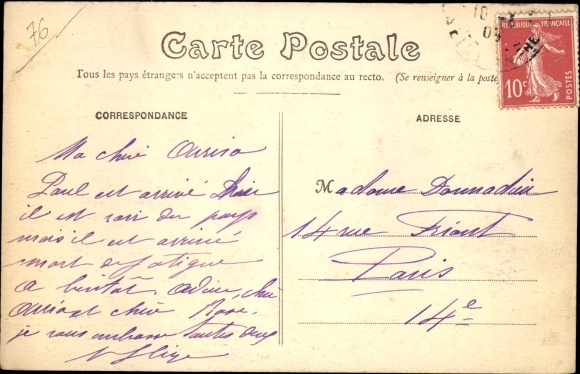 76
Carte Postale
Tous les pays étrangers n'acceptent pas la correspondance au recto. (Se renseigner à la poste
CORRESPONDANCE
ADRESSE
REPUBLIQUE FRANÇAISE
10c
POSTES
Ma chère
Paul est arrivé
il est ravi du pays
mais il est arrivé
mort de fatigue
a bientôt adieu, chère
et chère Rose.
je vous embrasse toutes deux
Madame Donnadieu
14 rue Friant
Paris
14e